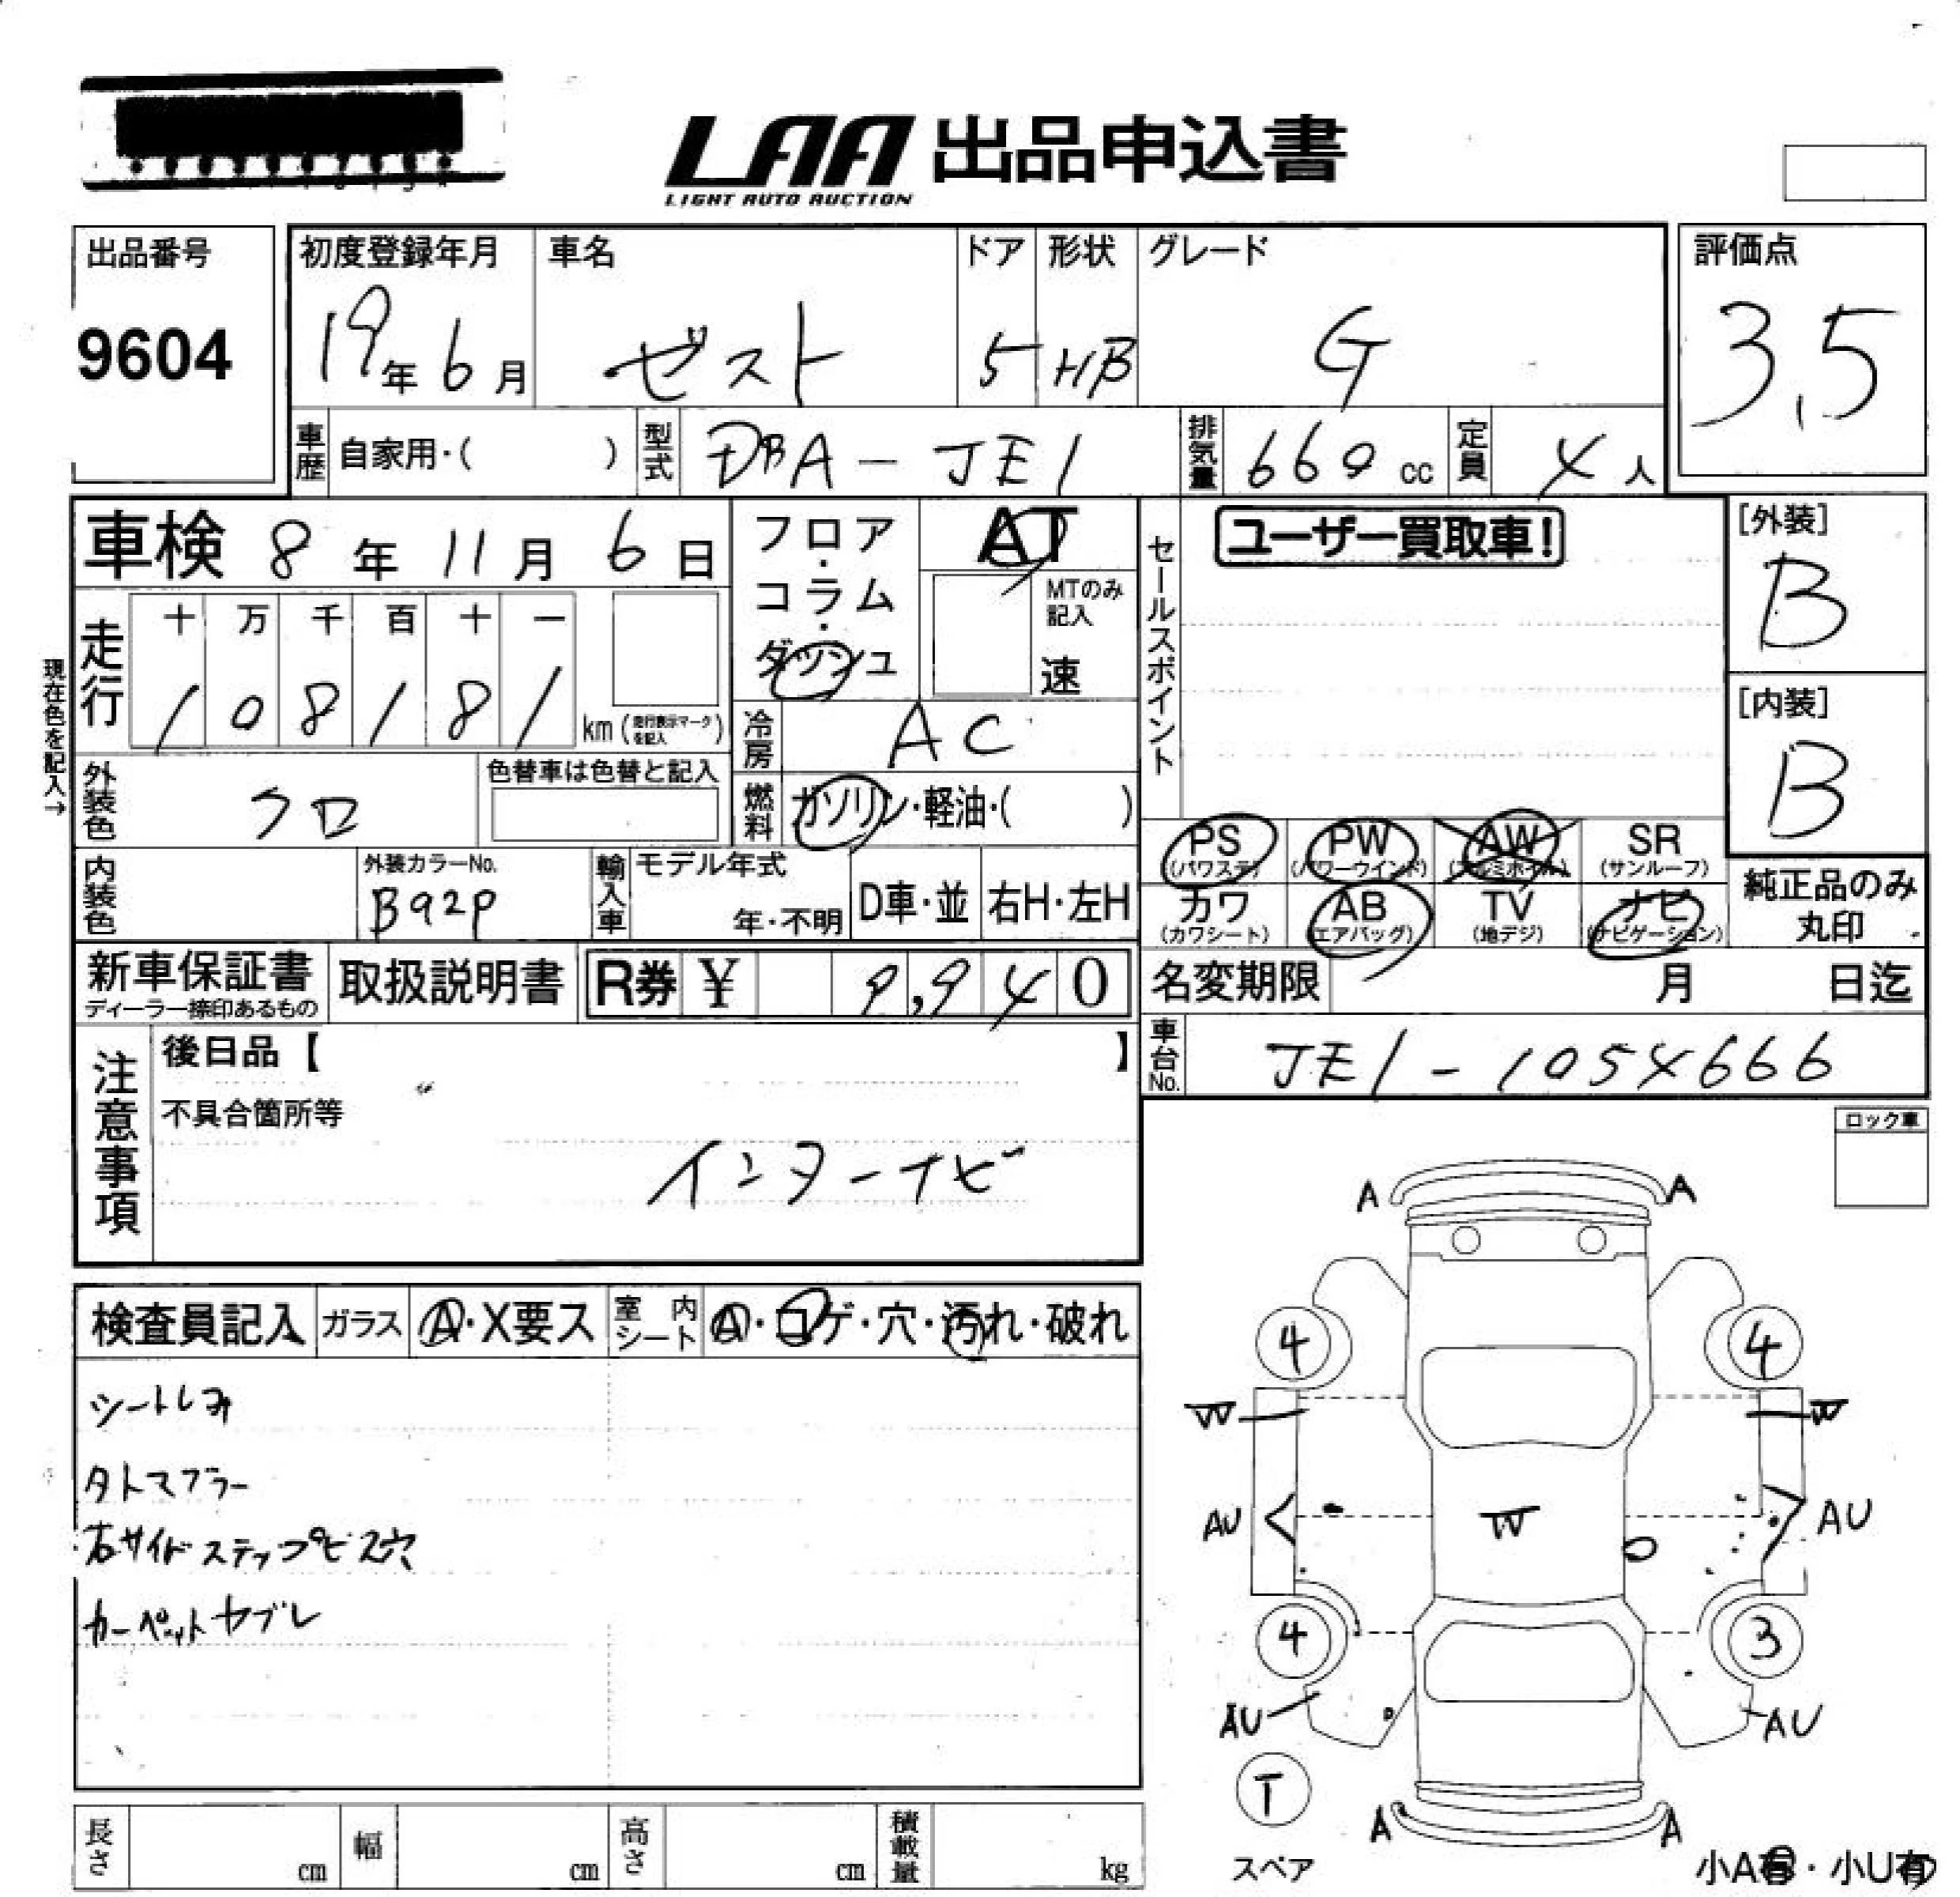 LAA 出品申込書
LIGHT AUTO AUCTION
出品番号
9604
初度登録年月
19年6月
車名
ゼスト
ドア
5
形状
HB
グレード
G
評価点
3.5
車歴 自家用・( )
型式 DBA-JE1
排気量 660 cc
定員 4人
車検 8年11月6日
フロア・コラム・ダッシュ
AT
MTのみ記入
速
セールスポイント
ユーザー買取車!
[外装]
B
[内装]
B
現在色を記入→
走行 十 万 千 百 十 一
1 0 8 1 8 1 km (走行表示マークを記入)
冷房 AC
外装色 クロ
色替車は色替と記入
燃料 ガソリン・軽油・( )
PS (パワステ)
PW (パワーウインド)
AW (アルミホイル)
SR (サンルーフ)
内装色
外装カラーNo.
B92P
輸入車 モデル年式
年・不明
D車・並
右H・左H
カワ (カワシート)
AB (エアバッグ)
TV (地デジ)
ナビ (ナビゲーション)
純正品のみ
丸印
新車保証書
ディーラー捺印あるもの
取扱説明書
R券 ¥ 9,940
名変期限 月 日迄
車台No. JE1-1054666
注意事項
後日品【 】
不具合箇所等
インターナビ
ロック車
検査員記入 ガラス A・X要ス 室内シート A・コゲ・穴・汚れ・破れ
シートしみ
タトマフラー
右サイドステップビス穴
カーペットヤブレ
A A
4 4
W W
AU W AU
4 3
AU AU
T
スペア
A A
小A有・小U有
長さ cm 幅 cm 高さ cm 積載量 kg